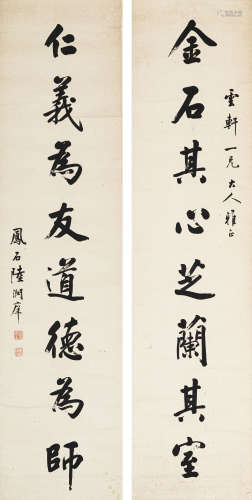 雲軒一兄大人雅正
金石其心芝蘭其室
仁義為友道德為師
鳳石陸潤庠